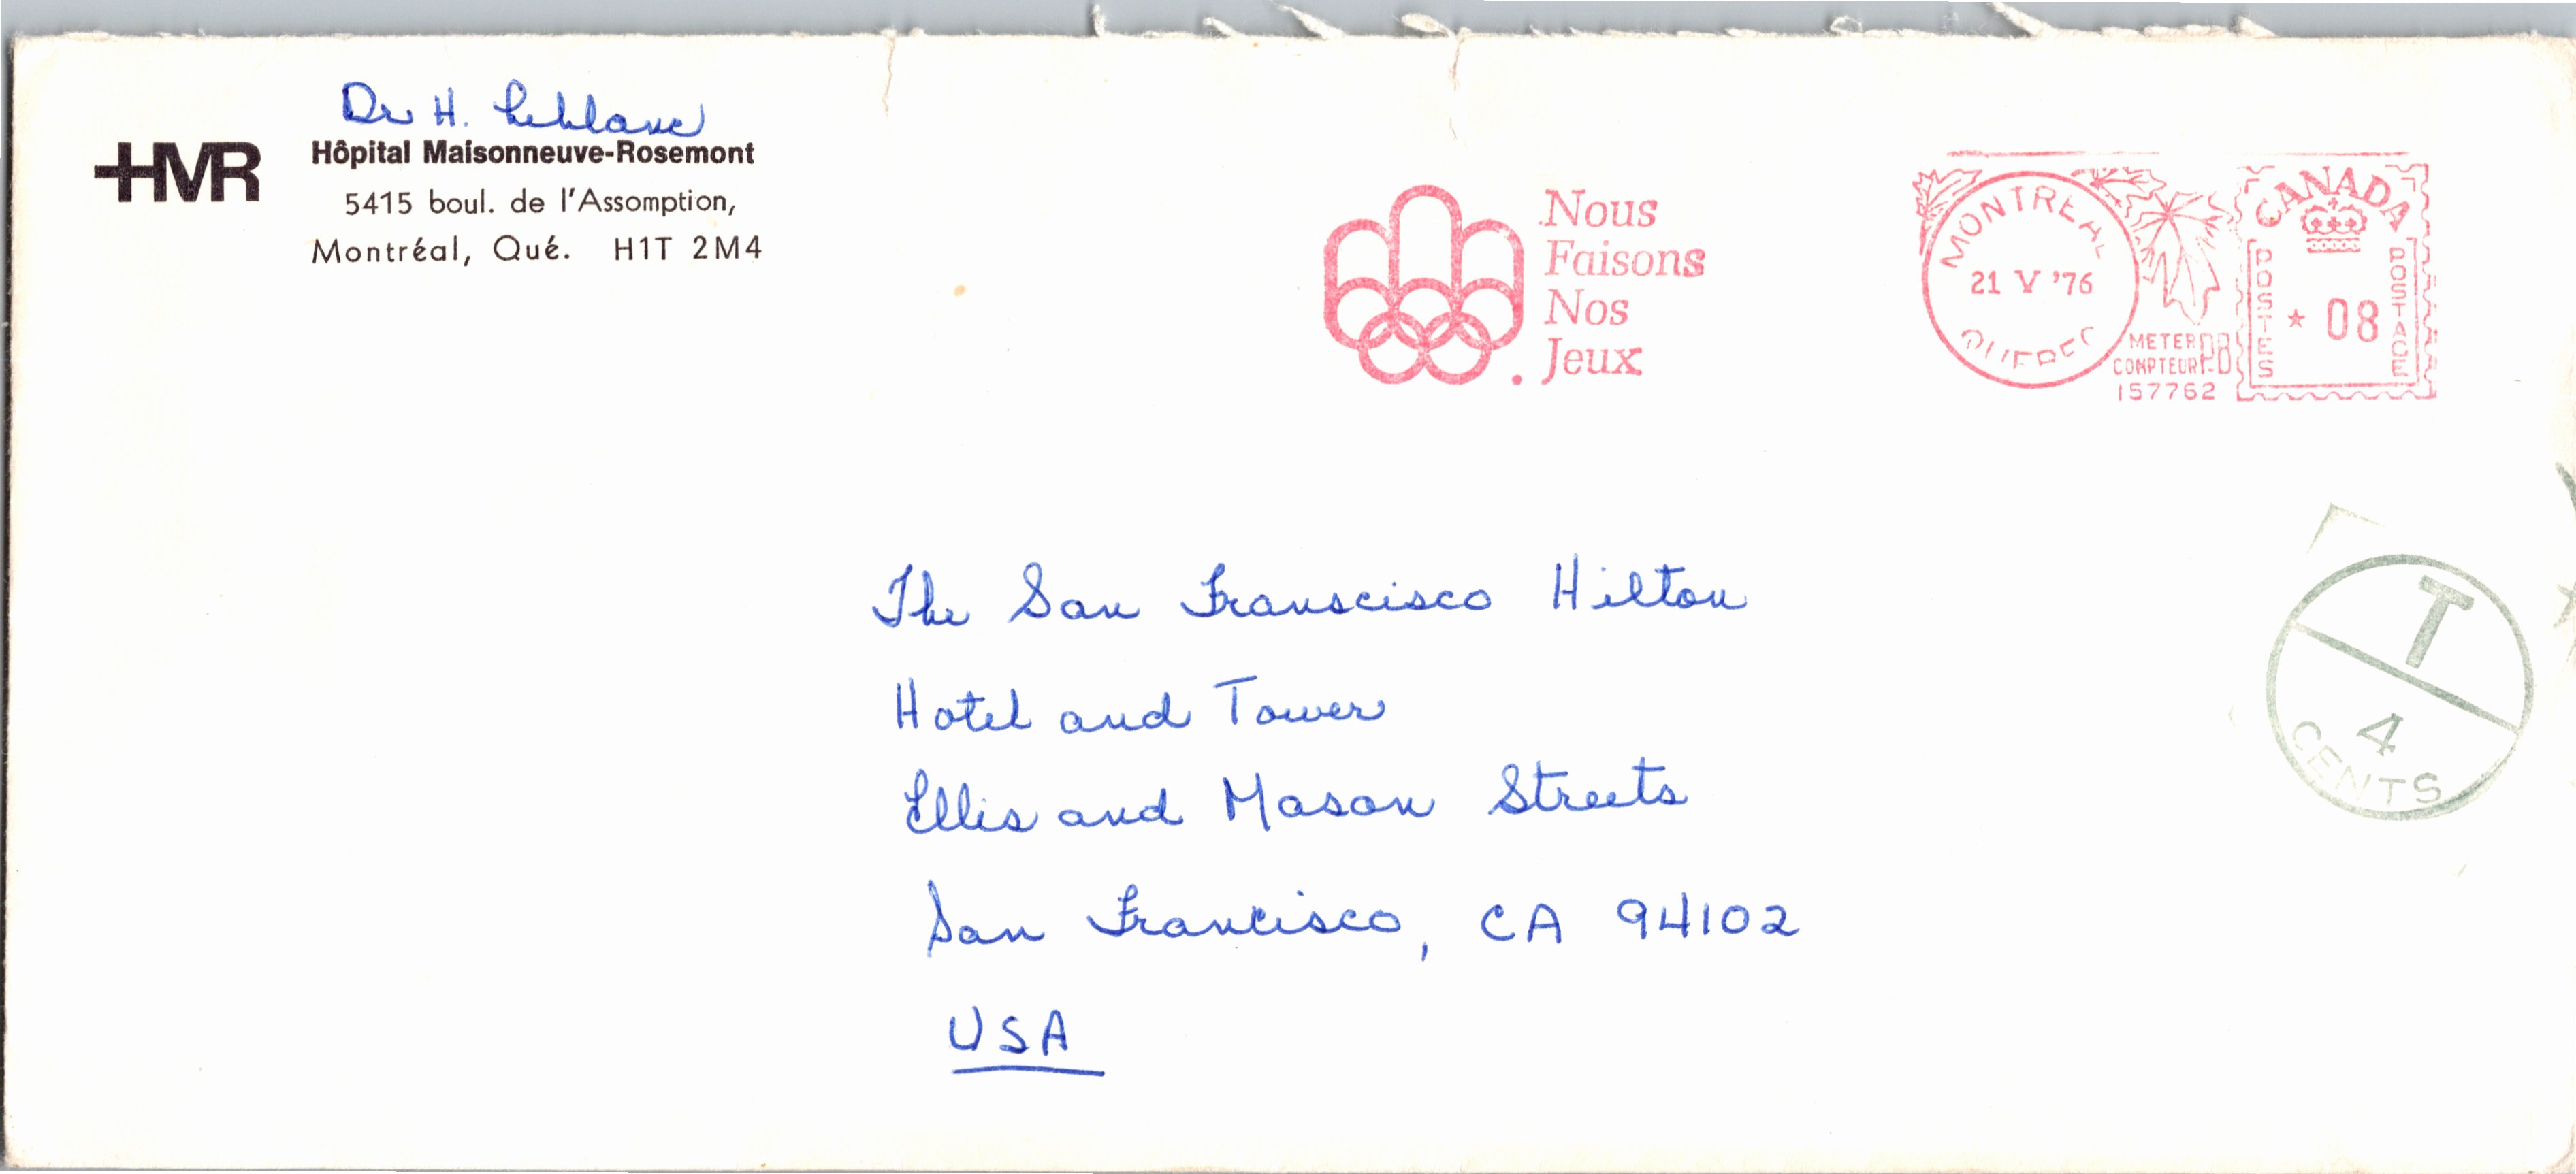 Dr H. Leblanc
HMR
Hôpital Maisonneuve-Rosemont
5415 boul. de l'Assomption,
Montréal, Qué. H1T 2M4
Nous
Faisons
Nos
Jeux
MONTREAL
21 V '76
QUEBEC
METER
COMPTEUR
PB
157762
CANADA
POSTES
* 08
POSTAGE
T
4
CENTS
The San Franscisco Hilton
Hotel and Tower
Ellis and Mason Streets
San Francisco, CA 94102
USA